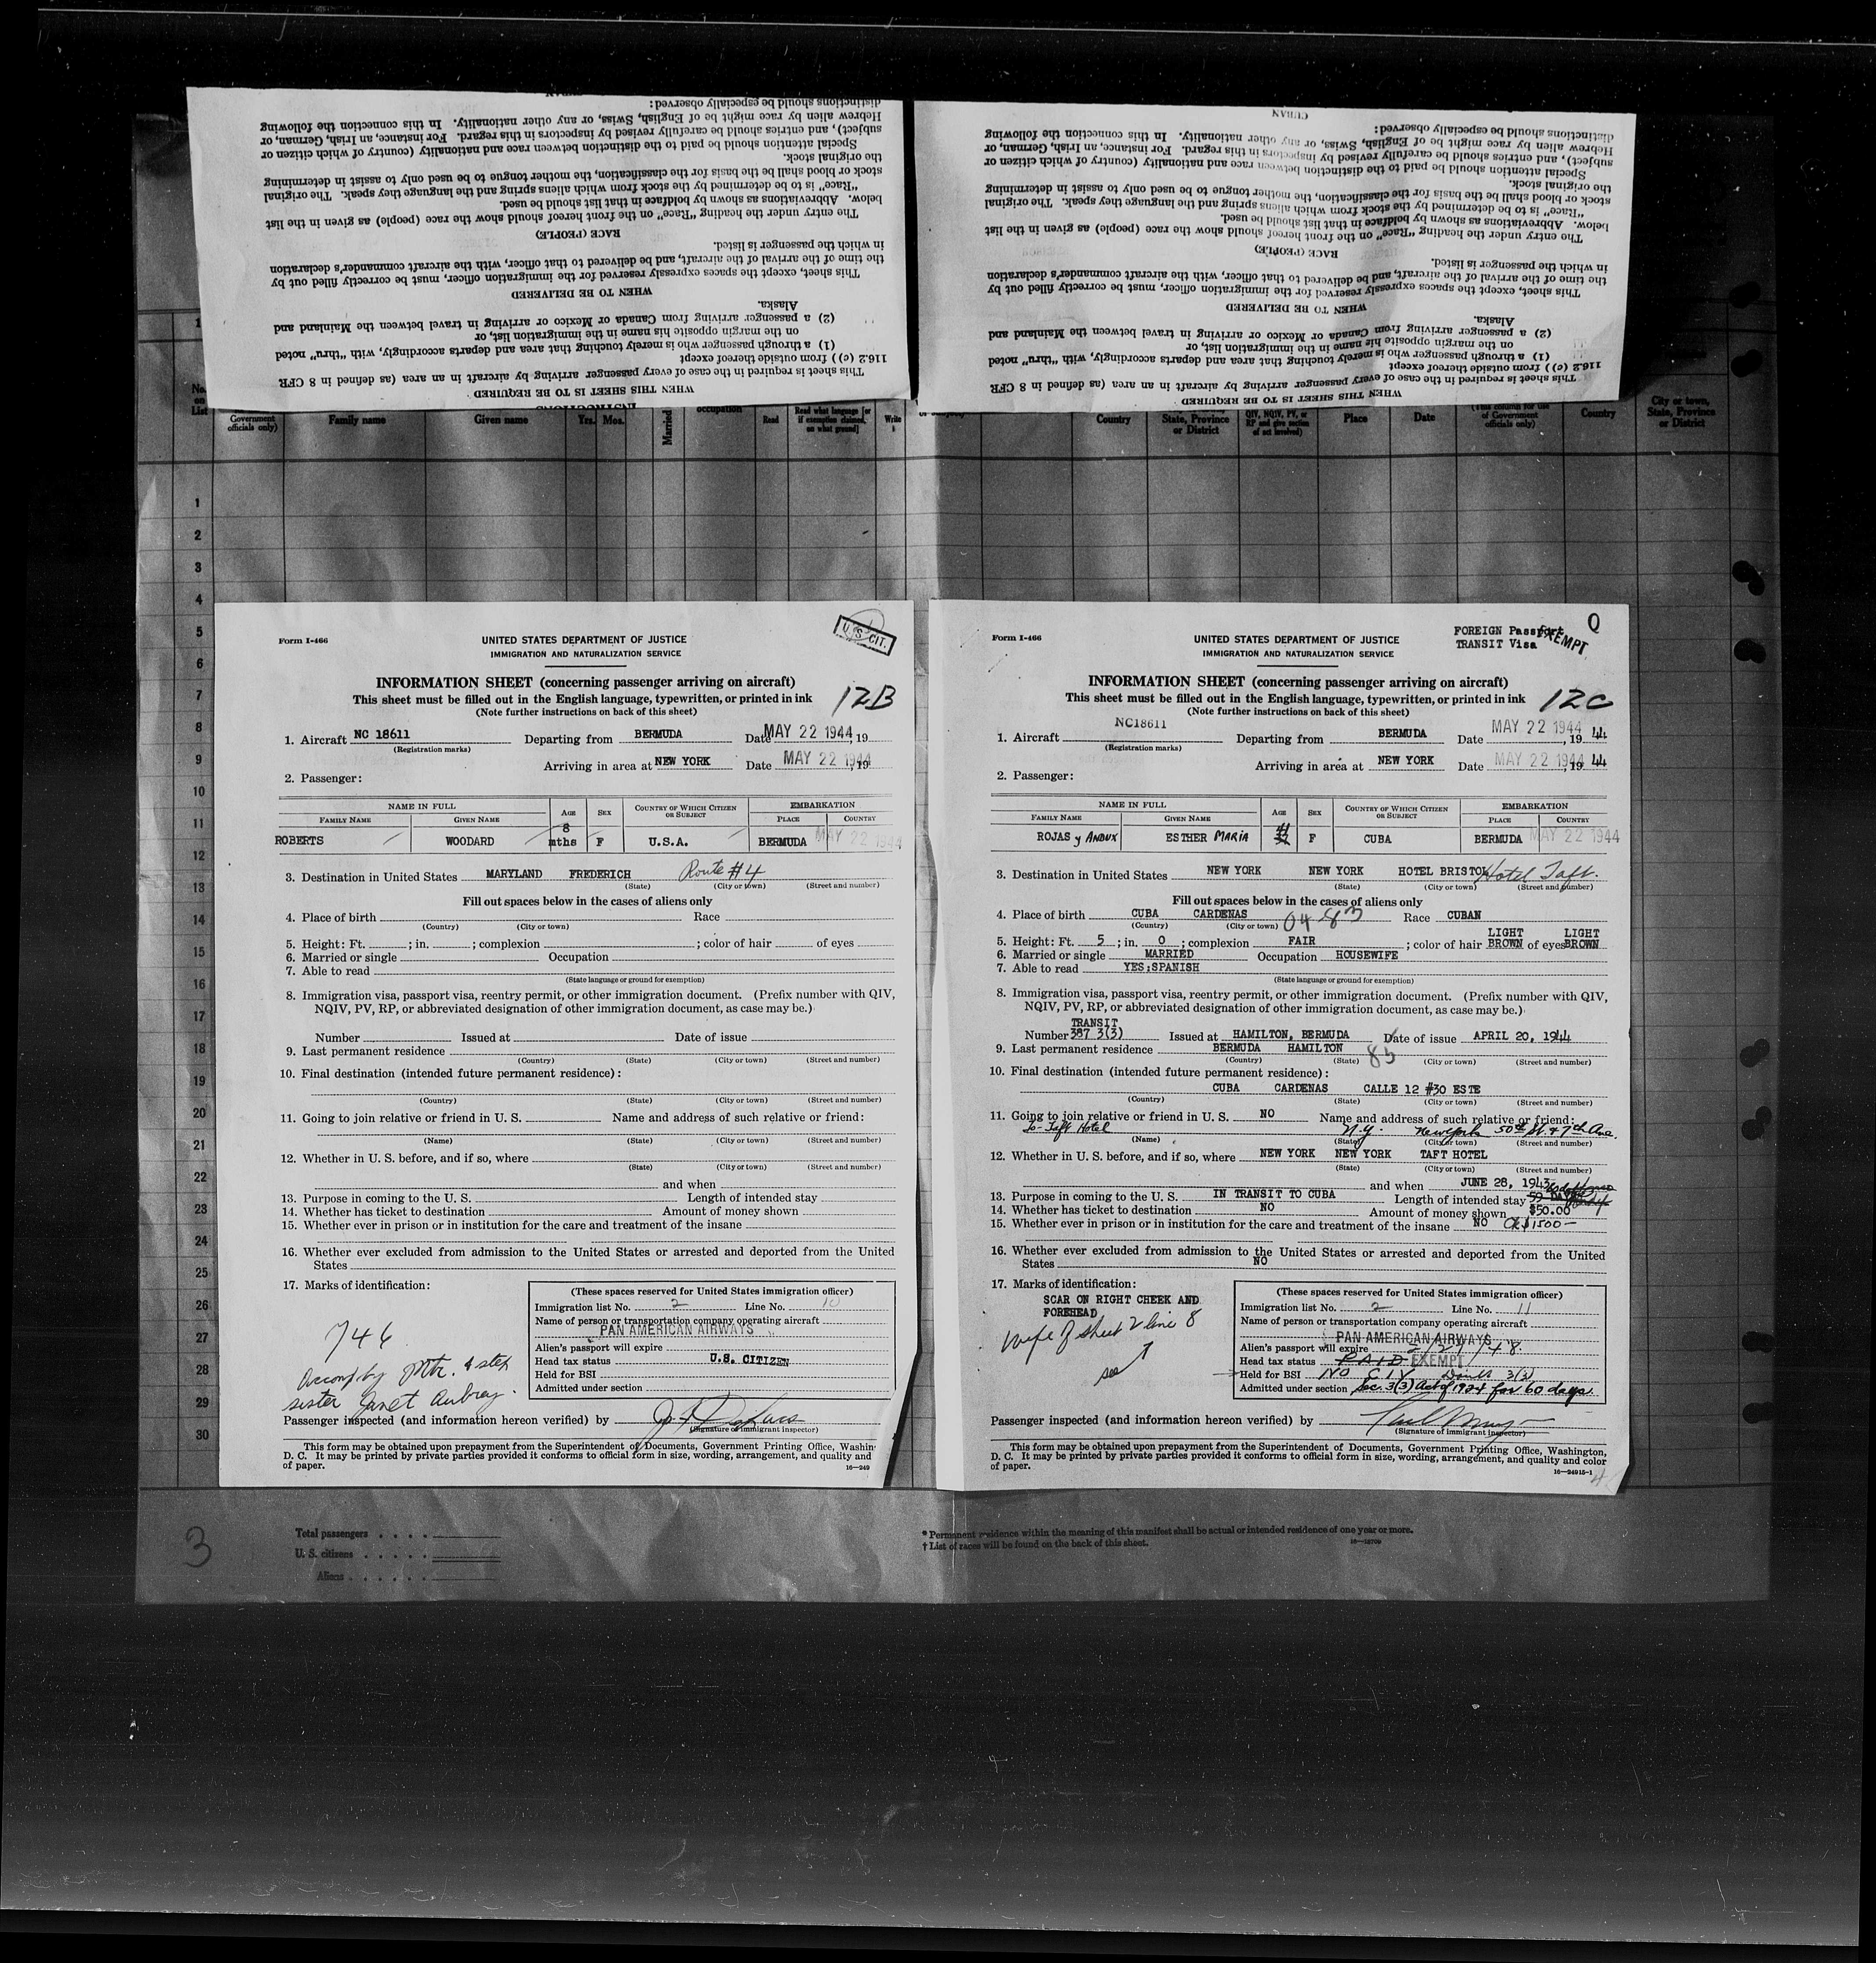 CUBAN
distinctions should be especially observed:
Hebrew alien by race might be of English, Swiss, or any other nationality. In this connection the following
subject), and entries should be carefully revised by inspectors in this regard. For instance, an Irish, German, or
Special attention should be paid to the distinction between race and nationality (country of which citizen or
the original stock.
stock or blood shall be the basis for the classification, the mother tongue to be used only to assist in determining
"Race" is to be determined by the stock from which aliens spring and the language they speak. The original
below. Abbreviations as shown by boldface in that list should be used.
The entry under the heading "Race" on the front hereof should show the race (people) as given in the list
RACE (PEOPLE)
in which the passenger is listed.
the time of the arrival of the aircraft, and be delivered to that officer, with the aircraft commander's declaration
This sheet, except the spaces expressly reserved for the immigration officer, must be correctly filled out by
WHEN TO BE DELIVERED
Alaska.
(2) a passenger arriving from Canada or Mexico or arriving in travel between the Mainland and
on the margin opposite his name in the immigration list, or
(1) a through passenger who is merely touching that area and departs accordingly, with "thru" noted
116.2 (c)) from outside thereof except
This sheet is required in the case of every passenger arriving by aircraft in an area (as defined in 8 CFR
WHEN THIS SHEET IS TO BE REQUIRED
INSTRUCTIONS
CUBAN
distinctions should be especially observed:
Hebrew alien by race might be of English, Swiss, or any other nationality. In this connection the following
subject), and entries should be carefully revised by inspectors in this regard. For instance, an Irish, German, or
Special attention should be paid to the distinction between race and nationality (country of which citizen or
the original stock.
stock or blood shall be the basis for the classification, the mother tongue to be used only to assist in determining
"Race" is to be determined by the stock from which aliens spring and the language they speak. The original
below. Abbreviations as shown by boldface in that list should be used.
The entry under the heading "Race" on the front hereof should show the race (people) as given in the list
RACE (PEOPLE)
in which the passenger is listed.
the time of the arrival of the aircraft, and be delivered to that officer, with the aircraft commander's declaration
This sheet, except the spaces expressly reserved for the immigration officer, must be correctly filled out by
WHEN TO BE DELIVERED
Alaska.
(2) a passenger arriving from Canada or Mexico or arriving in travel between the Mainland and
on the margin opposite his name in the immigration list, or
(1) a through passenger who is merely touching that area and departs accordingly, with "thru" noted
116.2 (c)) from outside thereof except
This sheet is required in the case of every passenger arriving by aircraft in an area (as defined in 8 CFR
WHEN THIS SHEET IS TO BE REQUIRED
No. on List
Government officials only) Family name Given name Yrs. Mos. Married occupation Read Read what language [or if exemption claimed, on what ground] Write
Country State, Province or District QIV, NQIV, PV, or RP and give section of act involved) Place Date (This column for use of Government officials only) Country City or town, State, Province or District
1
2
3
4
5
6
7
8
9
10
11
12
13
14
15
16
17
18
19
20
21
22
23
24
25
26
27
28
29
30
Form I-466
U.S. CIT.
UNITED STATES DEPARTMENT OF JUSTICE
IMMIGRATION AND NATURALIZATION SERVICE
INFORMATION SHEET (concerning passenger arriving on aircraft)
This sheet must be filled out in the English language, typewritten, or printed in ink
(Note further instructions on back of this sheet)
12B
1. Aircraft NC 18611 Departing from BERMUDA Date MAY 22 1944, 19
(Registration marks)
Arriving in area at NEW YORK Date MAY 22 1944, 19
2. Passenger:
NAME IN FULL AGE SEX COUNTRY OF WHICH CITIZEN OR SUBJECT EMBARKATION
FAMILY NAME GIVEN NAME PLACE COUNTRY
ROBERTS WOODARD 8 mths F U.S.A. BERMUDA MAY 22 1944
3. Destination in United States MARYLAND FREDERICH Route #4
(State) (City or town) (Street and number)
Fill out spaces below in the cases of aliens only
4. Place of birth Race
(Country) (City or town)
5. Height: Ft. ; in. ; complexion ; color of hair of eyes
6. Married or single Occupation
7. Able to read
(State language or ground for exemption)
8. Immigration visa, passport visa, reentry permit, or other immigration document. (Prefix number with QIV,
NQIV, PV, RP, or abbreviated designation of other immigration document, as case may be.)
Number Issued at Date of issue
9. Last permanent residence
(Country) (State) (City or town) (Street and number)
10. Final destination (intended future permanent residence):
(Country) (State) (City or town) (Street and number)
11. Going to join relative or friend in U. S. Name and address of such relative or friend:
(Name) (State) (City or town) (Street and number)
12. Whether in U. S. before, and if so, where
(State) (City or town) (Street and number)
and when
13. Purpose in coming to the U. S. Length of intended stay
14. Whether has ticket to destination Amount of money shown
15. Whether ever in prison or in institution for the care and treatment of the insane
16. Whether ever excluded from admission to the United States or arrested and deported from the United
States
17. Marks of identification:
746
Accomp by Mtr. & step
sister Janet Aubrey.
(These spaces reserved for United States immigration officer)
Immigration list No. 2 Line No. 10
Name of person or transportation company operating aircraft
PAN AMERICAN AIRWAYS
Alien's passport will expire
Head tax status U.S. CITIZEN
Held for BSI
Admitted under section
Passenger inspected (and information hereon verified) by
(Signature of immigrant inspector)
This form may be obtained upon prepayment from the Superintendent of Documents, Government Printing Office, Washin
D. C. It may be printed by private parties provided it conforms to official form in size, wording, arrangement, and quality and
of paper.
16—249
Form I-466
FOREIGN Passport EXEMPT
TRANSIT Visa
Q
UNITED STATES DEPARTMENT OF JUSTICE
IMMIGRATION AND NATURALIZATION SERVICE
INFORMATION SHEET (concerning passenger arriving on aircraft)
This sheet must be filled out in the English language, typewritten, or printed in ink
(Note further instructions on back of this sheet)
12C
1. Aircraft NC18611 Departing from BERMUDA Date MAY 22 1944, 1944
(Registration marks)
Arriving in area at NEW YORK Date MAY 22 1944, 1944
2. Passenger:
NAME IN FULL AGE SEX COUNTRY OF WHICH CITIZEN OR SUBJECT EMBARKATION
FAMILY NAME GIVEN NAME PLACE COUNTRY
ROJAS y ANDUX ESTHER MARIA F CUBA BERMUDA MAY 22 1944
3. Destination in United States NEW YORK NEW YORK HOTEL BRISTOL Hotel Taft.
(State) (City or town) (Street and number)
Fill out spaces below in the cases of aliens only
4. Place of birth CUBA CARDENAS 04-83 Race CUBAN
(Country) (City or town)
5. Height: Ft. 5 ; in. 0 ; complexion FAIR ; color of hair LIGHT BROWN of eyes LIGHT BROWN
6. Married or single MARRIED Occupation HOUSEWIFE
7. Able to read YES;SPANISH
(State language or ground for exemption)
8. Immigration visa, passport visa, reentry permit, or other immigration document. (Prefix number with QIV,
NQIV, PV, RP, or abbreviated designation of other immigration document, as case may be.)
TRANSIT
Number 387 3(3) Issued at HAMILTON, BERMUDA Date of issue APRIL 20, 1944
9. Last permanent residence BERMUDA HAMILTON 85
(Country) (State) (City or town) (Street and number)
10. Final destination (intended future permanent residence):
CUBA CARDENAS CALLE 12 #30 ESTE
(Country) (State) (City or town) (Street and number)
11. Going to join relative or friend in U. S. NO Name and address of such relative or friend:
To- Taft Hotel N.Y. New York 50th St & 7th Ave.
(Name) (State) (City or town) (Street and number)
12. Whether in U. S. before, and if so, where NEW YORK NEW YORK TAFT HOTEL
(State) (City or town) (Street and number)
and when JUNE 28, 1943
13. Purpose in coming to the U. S. IN TRANSIT TO CUBA Length of intended stay 59 DAYS
14. Whether has ticket to destination NO Amount of money shown $50.00
15. Whether ever in prison or in institution for the care and treatment of the insane NO Ck $1500—
16. Whether ever excluded from admission to the United States or arrested and deported from the United
States NO
17. Marks of identification:
SCAR ON RIGHT CHEEK AND
FOREHEAD
wife of sheet 2 line 8
see
(These spaces reserved for United States immigration officer)
Immigration list No. 2 Line No. 11
Name of person or transportation company operating aircraft
PAN AMERICAN AIRWAYS
Alien's passport will expire 2/27/48.
Head tax status PAID EXEMPT
Held for BSI NO CIV 3(3)
Admitted under section Sec. 3(3) Act of 1924 for 60 days.
Passenger inspected (and information hereon verified) by
(Signature of immigrant inspector)
This form may be obtained upon prepayment from the Superintendent of Documents, Government Printing Office, Washington,
D. C. It may be printed by private parties provided it conforms to official form in size, wording, arrangement, and quality and color
of paper.
16—24915-1
3
Total passengers
U. S. citizens
Aliens
* Permanent residence within the meaning of this manifest shall be actual or intended residence of one year or more.
† List of races will be found on the back of this sheet.